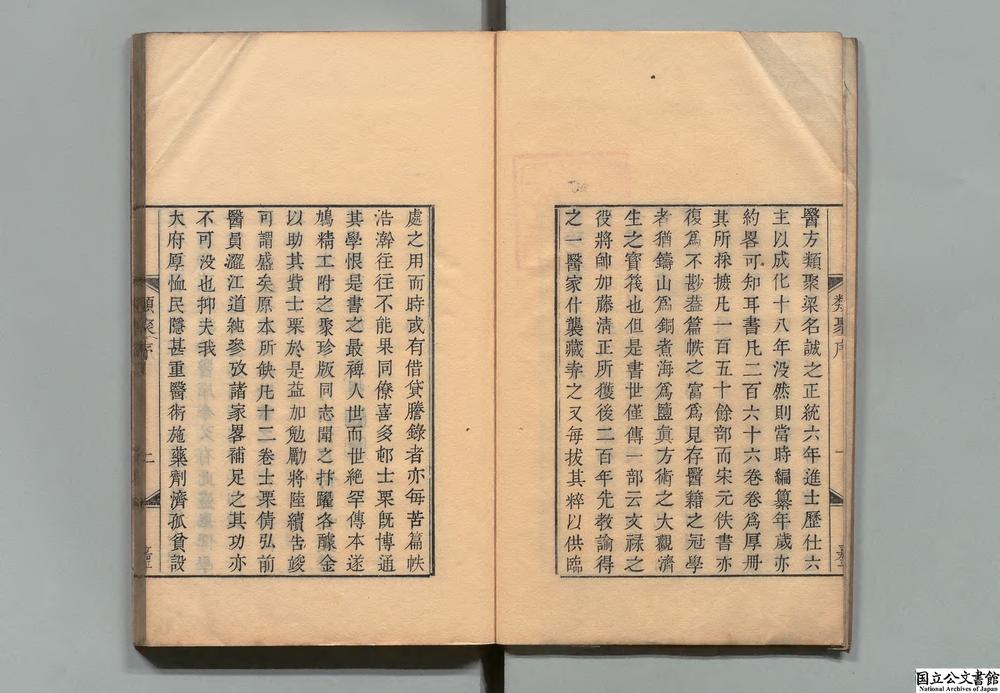 醫方類聚梁名誠之正統六年進士歷仕六
主以成化十八年没然則當時編纂年歲亦
約畧可知耳書凡二百六十六卷卷爲厚册
其所採摭凡一百五十餘部而宋元佚書亦
復爲不尠葢篇帙之富爲見存醫籍之冠學
者猶鑄山爲銅煮海爲鹽眞方術之大觀濟
生之寳筏也但是書世僅傳一部云文禄之
役將帥加藤淸正所獲後二百年先教諭得
之一醫家什襲藏弆之又毎拔其粹以供臨
類聚序
一
處之用而時或有借貸謄錄者亦毎苦篇帙
浩瀚往往不能果同僚喜多邨士栗旣博通
其學恨是書之最裨人世而世絶罕傳本遂
鳩精工附之聚珍版同志聞之抃躍各醵金
以助其費士栗於是益加勉勵將陸續告竣
可謂盛矣原本所缺凡十二卷士栗倩弘前
醫員澀江道純參攷諸家畧補足之其功亦
不可没也抑夫我
大府厚恤民隱甚重醫術施藥劑濟孤貧設
類聚序
二
国立公文書館
National Archives of Japan